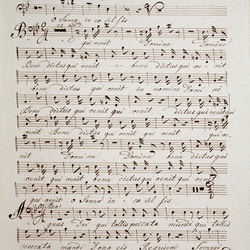 O Sanna in ex cel sis
Be
qui venit Domine Domine
Bene dictus qui venit bene dictus qui ve nit
bene dictus qui venit in nomine Domi ni
Bene dictus qui venit qui venit qui venit
Bene dictus qui venit qui
ni Domine bene dictus qui
venit qui venit bene dictus qui venit qui venit
qui venit O Sanna in ex cel sis
A
gnus Dei qui tollis peccata mundi qui tollis
peccata mundi Dona eis Requiem Sempi